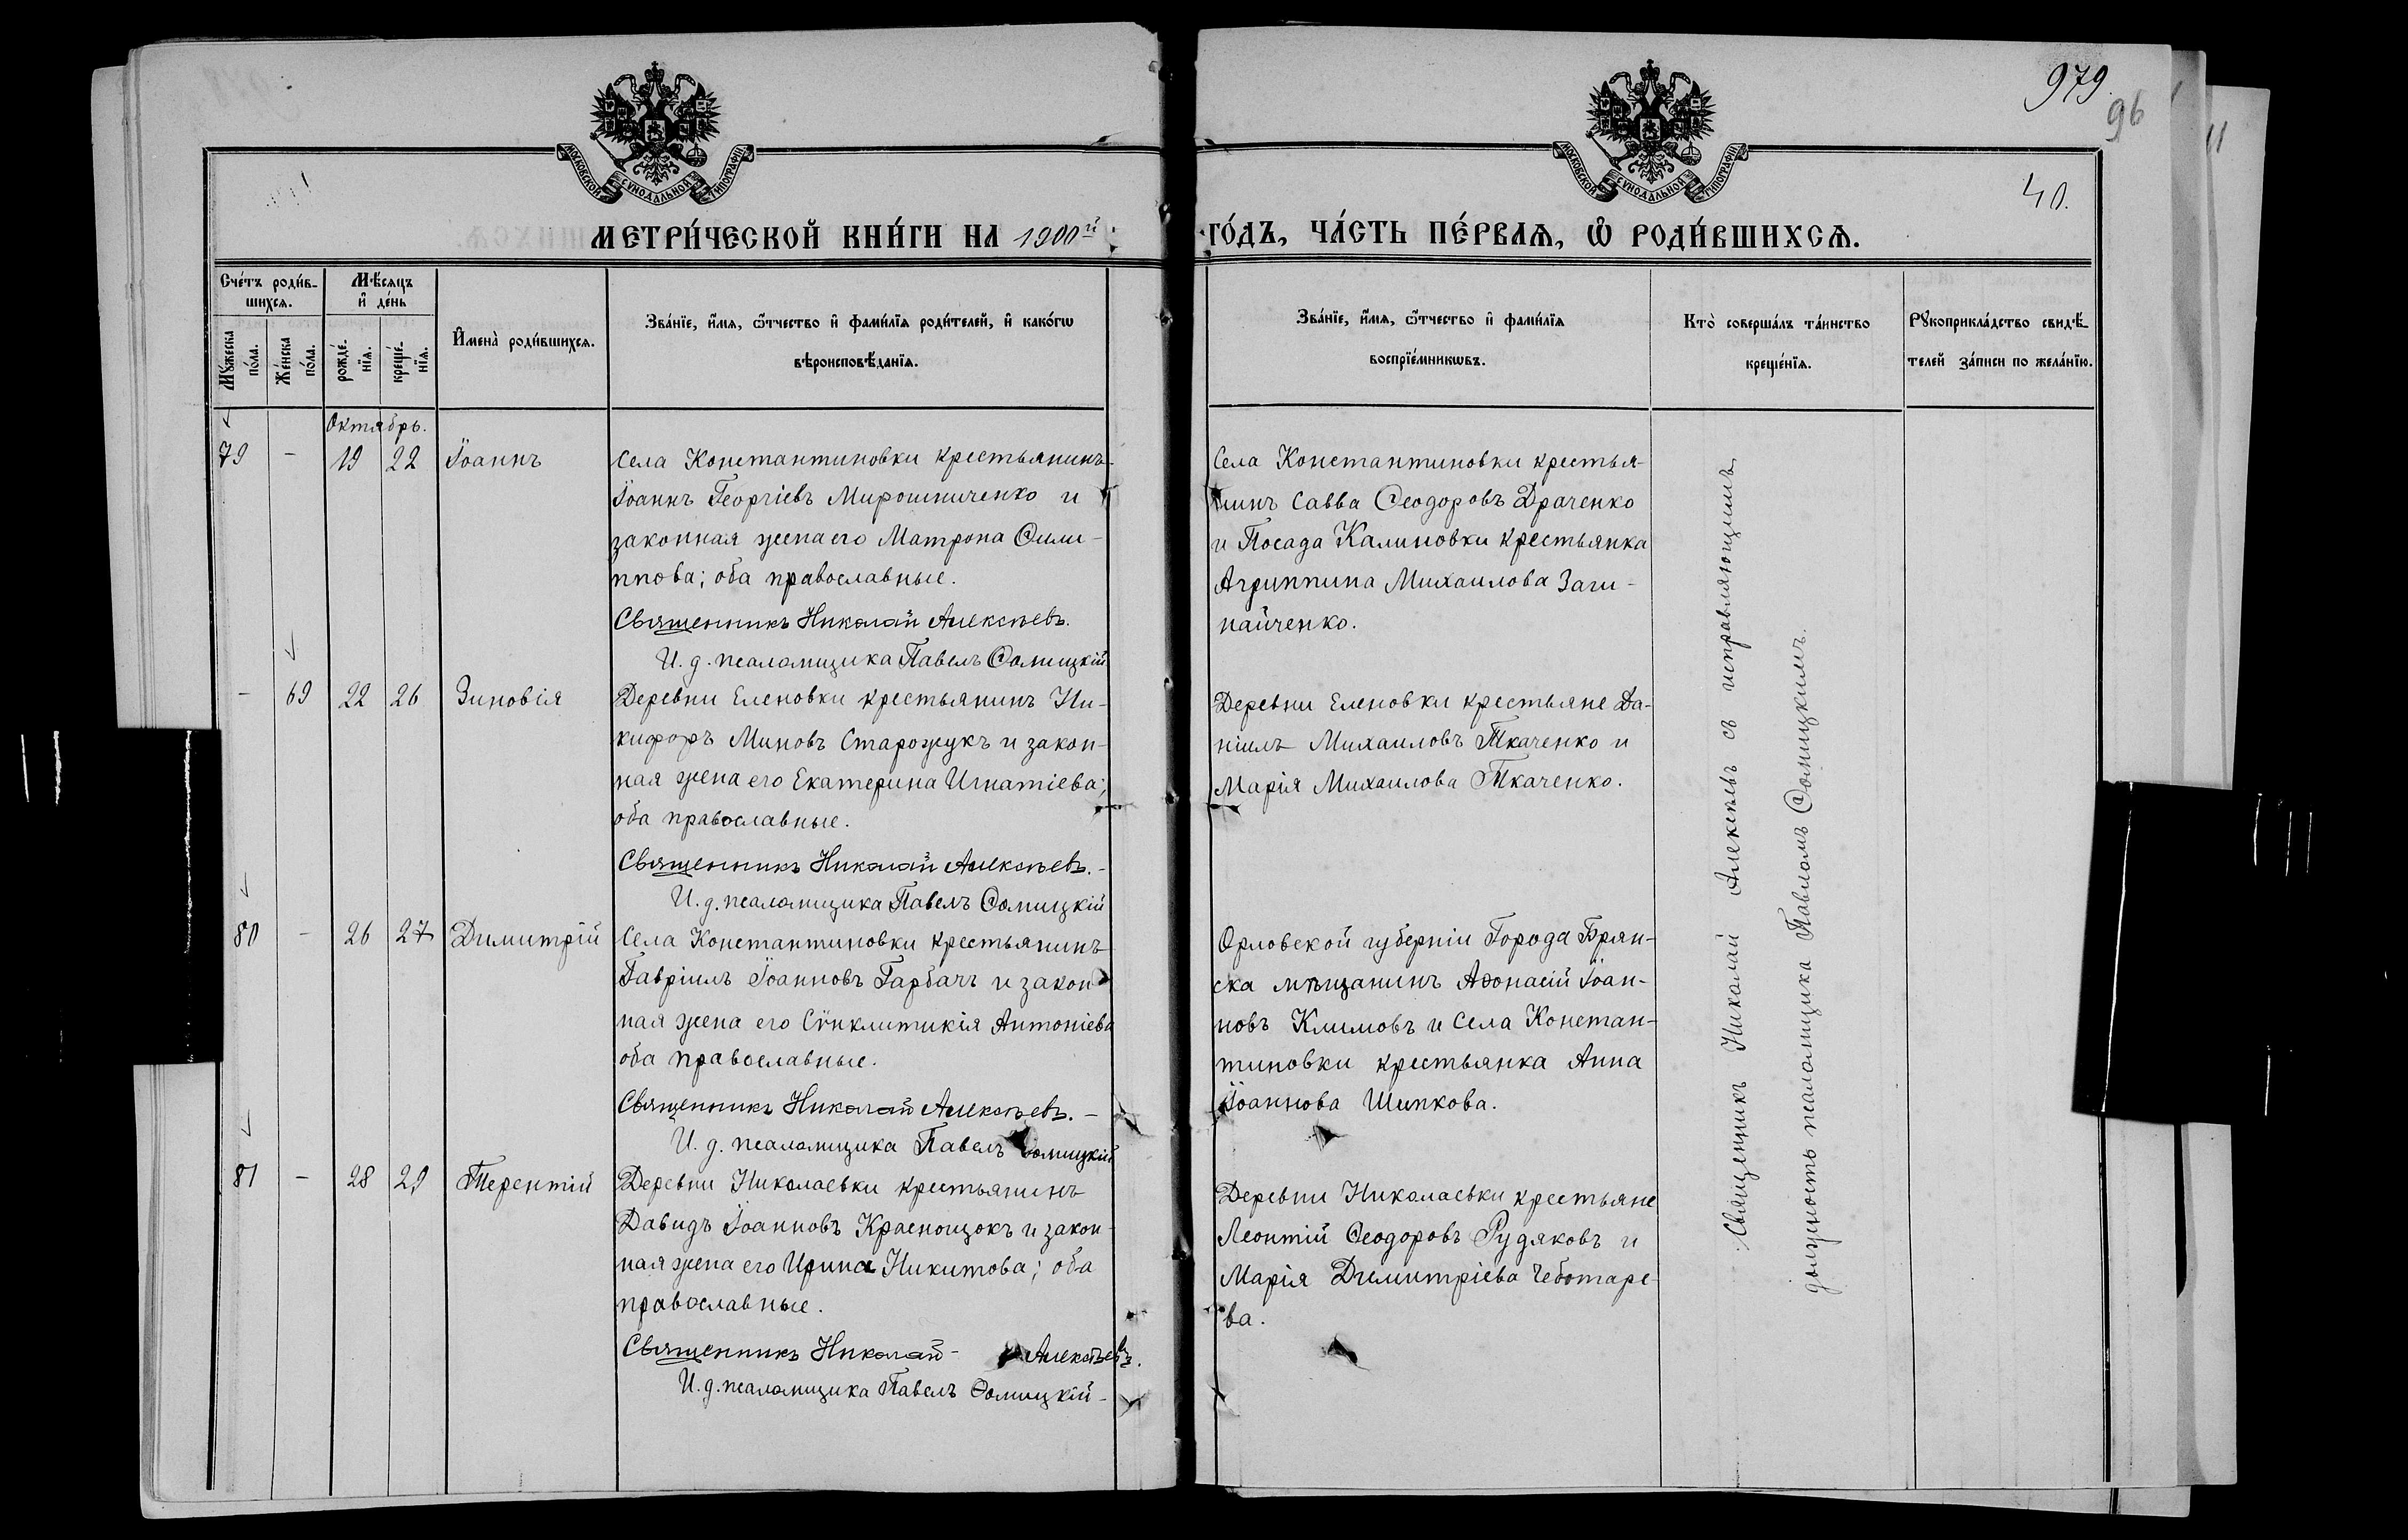 979.
96
40.
МОСКОВСКОЙ СѴНОДАЛЬНОЙ ТИПОГРАФІИ
МОСКОВСКОЙ СѴНОДАЛЬНОЙ ТИПОГРАФІИ
МЕТРИ́ЧЕСКОЙ КНИ́ГИ НА 1900й
ГО́ДЪ, ЧА́СТЬ ПЕ́РВАѦ, Ѽ РОДИ́ВШИХСѦ.
Сче́тъ роди́в-
шихсѧ.
Мѣ́сяцъ
и҆ де́нь
Мꙋ́жеска
по́ла.
Же́нска
по́ла.
рожде́-
нїѧ.
креще́-
нїѧ.
И҆мена̀ роди́вшихсѧ.
Зва́нїе, и҆́мѧ, ѻ҆́тчество и҆ фами́лїѧ роди́телей, и҆ како́гѡ
вѣроисповѣ́данїѧ.
Зва́нїе, и҆́мѧ, ѻ҆́тчество и҆ фами́лїѧ
воспрїе́мникѡвъ.
Кто̀ соверша́лъ та́инство
креще́нїѧ.
Рꙋкоприкла́дство свидѣ́-
телей за́писи по жела́нїю.
Октябрь.
79 - 19 22 Іоаннъ
Села Константиновки крестьянинъ
Іоаннъ Георгіевъ Мирошниченко и
законная жена его Матрона Фили-
ппова; оба православные.
Священникъ Николай Алексѣевъ.
И. д. псаломщика Павелъ Ѳомицкій
Села Константиновки крестья-
нинъ Савва Ѳеодоровъ Драченко
и Посада Калиновки крестьянка
Агриппина Михаилова Заги-
найченко.
- 69 22 26 Зиновія
Деревни Еленовки крестьянинъ Ни-
кифоръ Миновъ Старожукъ и закон-
ная жена его Екатерина Игнатіева;
оба православные.
Священникъ Николай Алексѣевъ.-
И. д. псаломщика Павелъ Ѳомицкій
Деревни Еленовки крестьяне Да-
ніилъ Михаиловъ Ткаченко и
Марія Михаилова Ткаченко.
80 - 26 27 Димитрій
Села Константиновки крестьянинъ
Гавріилъ Іоанновъ Гарбачъ и закон-
ная жена его Сѵнклитикія Антоніева
оба православные.
Священникъ Николай Алексѣевъ.-
И. д. псаломщика Павелъ Ѳомицкій
Орловской губерніи Города Брян-
ска мѣщанинъ Аѳонасій Іоан-
новъ Климовъ и Села Констан-
тиновки крестьянка Анна
Іоаннова Шипкова.
81 - 28 29 Терентій
Деревни Николаевки крестьянинъ
Давидъ Іоанновъ Краснощокъ и закон-
ная жена его Ирина Никитова; оба
православные.
Священникъ Николай- Алексѣевъ.
И. д. псаломщика Павелъ Ѳомицкій-
Деревни Николаевки крестьяне
Леонтій Ѳеодоровъ Рудяковъ и
Марія Димитріева Чеботаре-
ва.
Священникъ Николай Алексѣевъ съ исправляющимъ
должность псаломщика Павломъ Ѳомицкимъ.